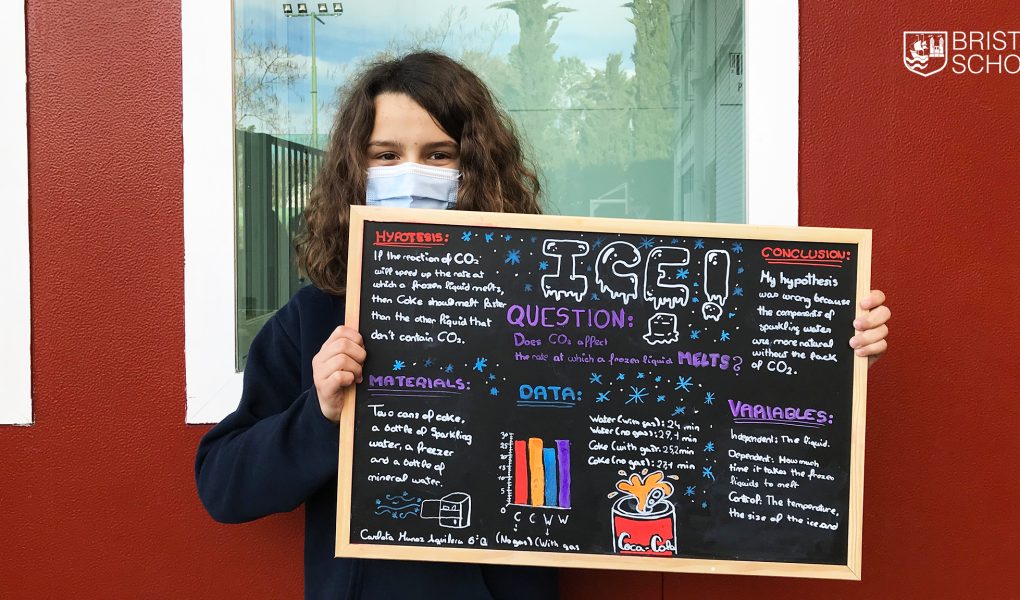 BRIST
SCHO
HYPOTESIS:
If the reaction of CO₂
will speed up the rate at
which a frozen liquid melts,
then Coke should melt faster
than the other liquid that
don't contain CO₂.
ICE!
QUESTION:
Does CO₂ affect
the rate at which a frozen liquid MELTS?
CONCLUSION:
My hypothesis
was wrong because
the components of
sparkling water
are more natural
without the pack
of CO₂.
MATERIALS:
Two cans of coke,
a bottle of sparkling
water, a freezer
and a bottle of
mineral water.
DATA:
30
25
20
15
10
5
0
C C W W
(No gas) (With gas
Water (with gas): 24 min
Water (no gas): 29,1 min
Coke (with gas): 25,2 min
Coke (no gas): 27,1 min
Coca-Cola
VARIABLES:
Independent: The liquid.
Dependent: How much
time it takes the frozen
liquids to melt
Control: The temperature,
the size of the ice and
Carlota Munoz Aguilera 6ºB